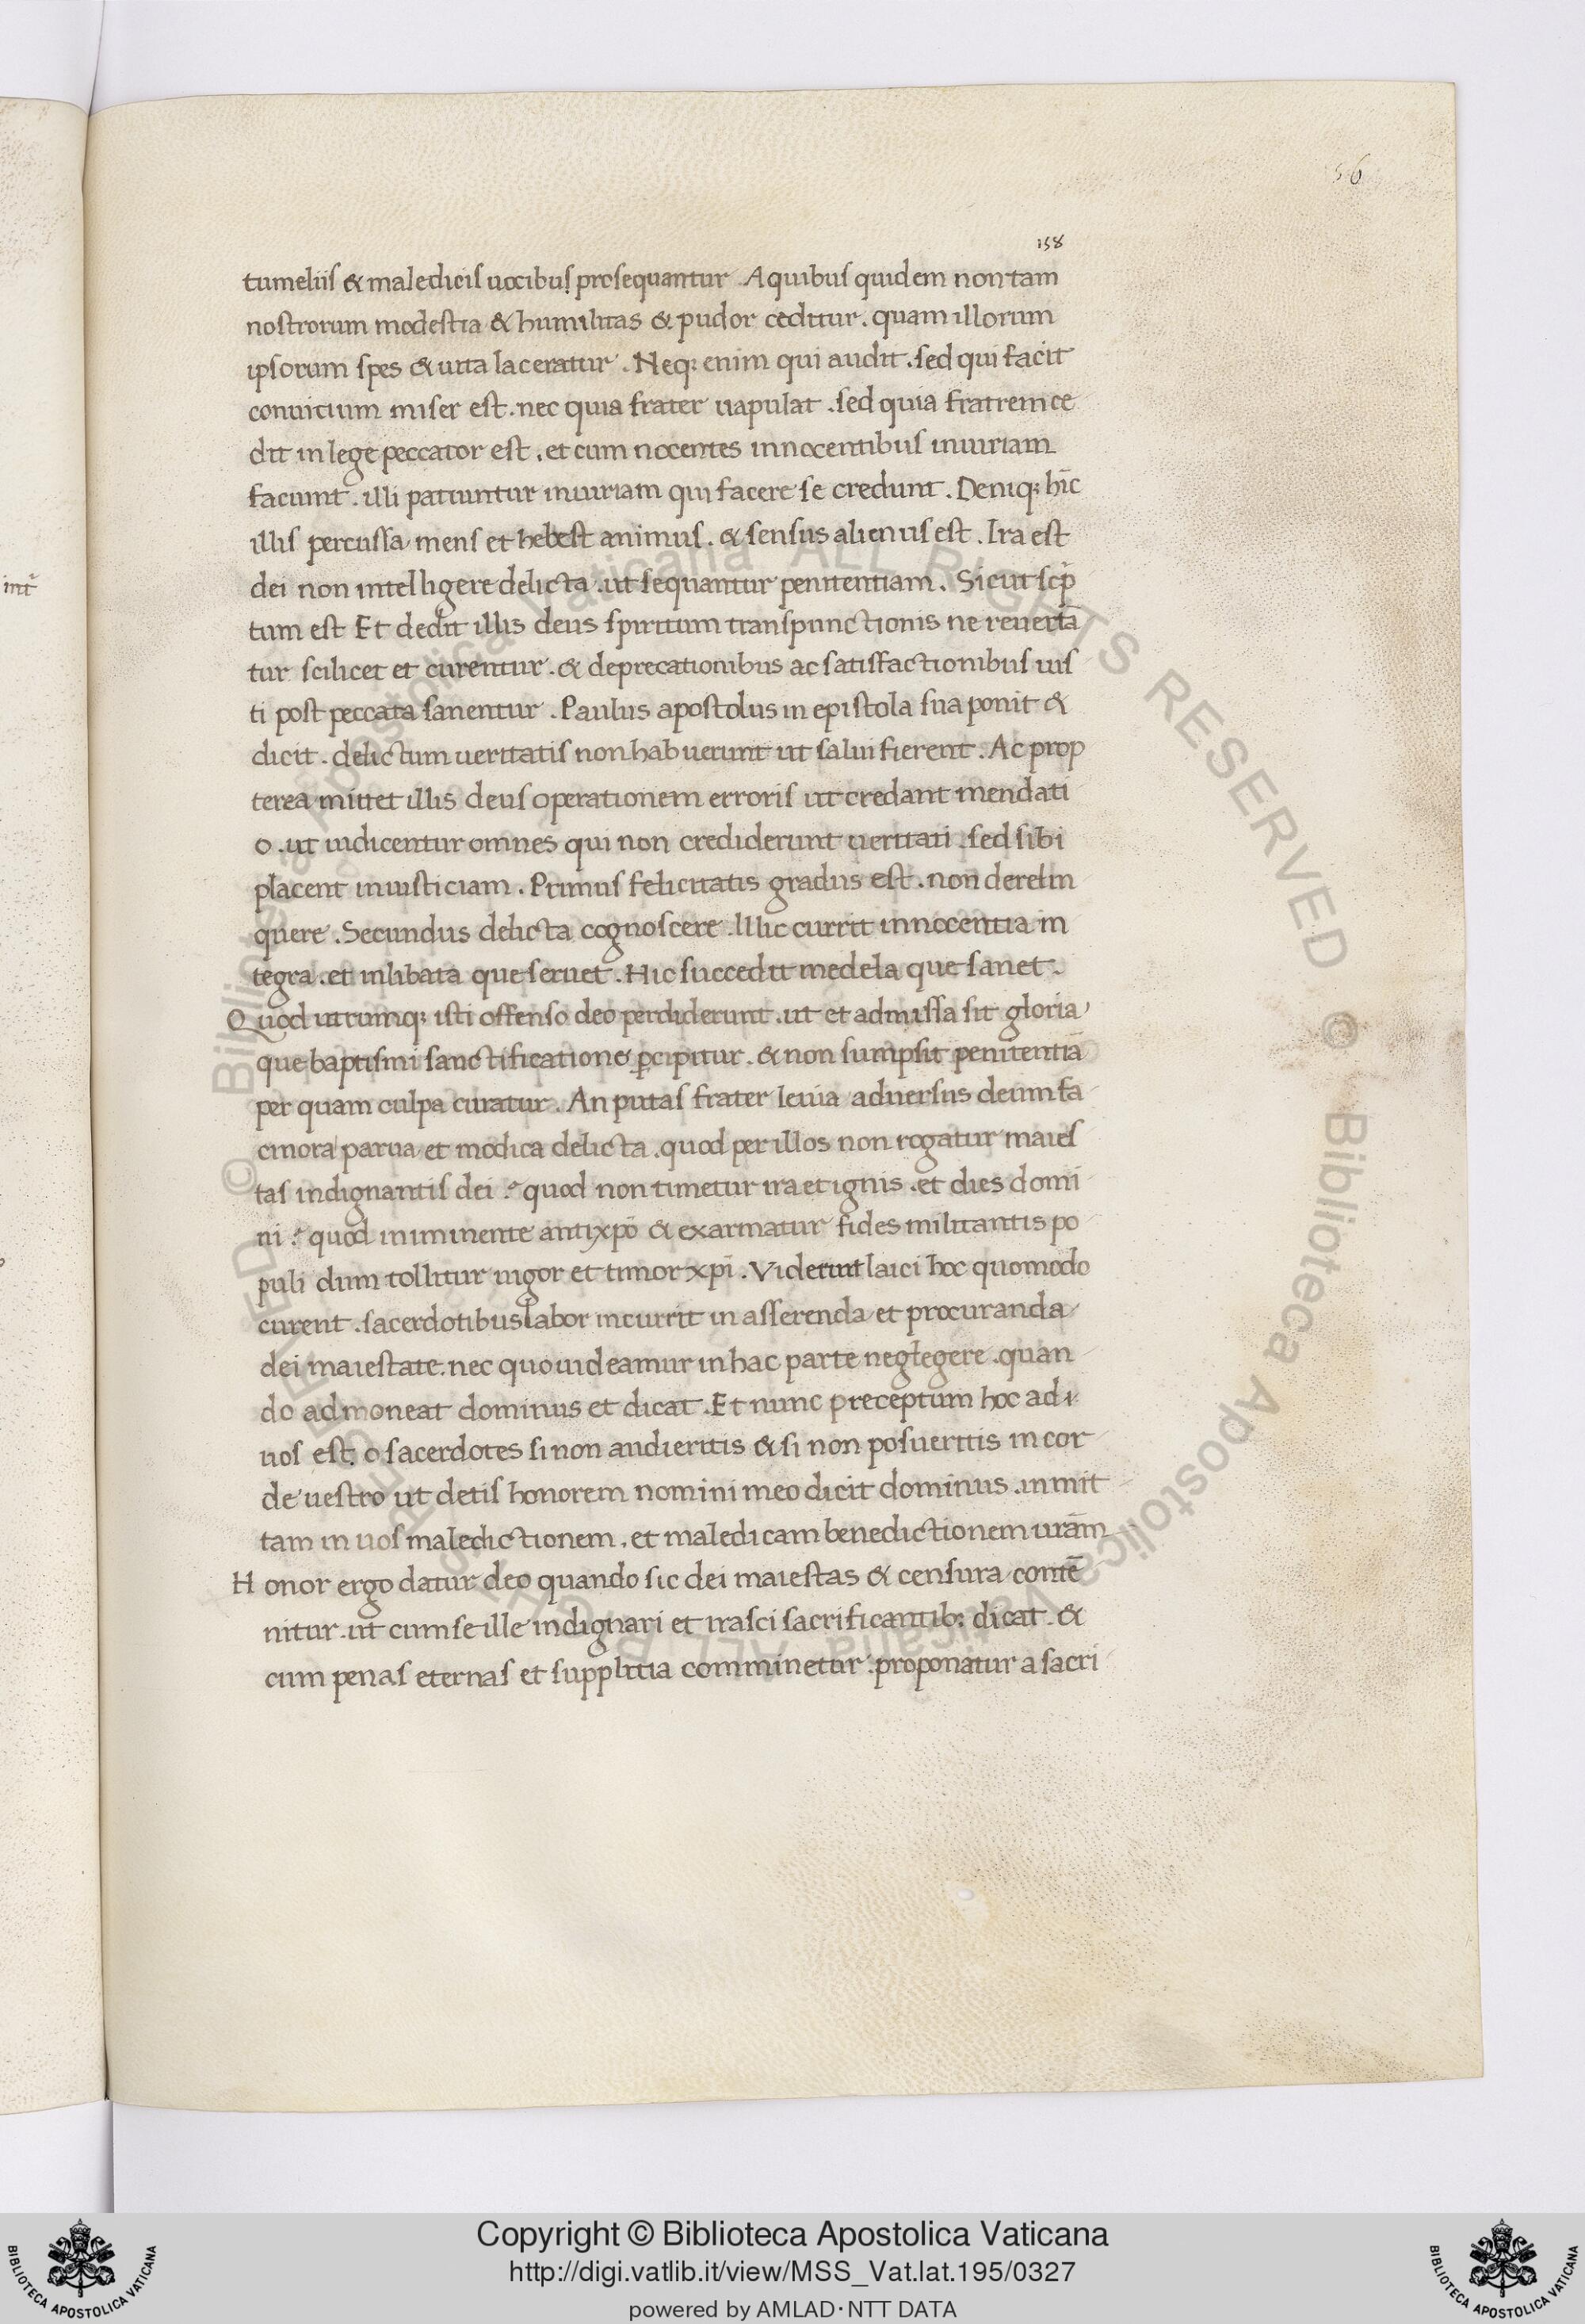 56
158
tumeliis & maledicis uocibus prosequantur . A quibus quidem non tam
nostrorum modestia & humilitas & pudor ceditur . quam illorum
ipsorum spes & uita laceratur . Neq; enim qui audit . sed qui facit
conuitium miser est . nec quia frater uapulat . sed quia fratrem ce
dit in lege peccator est . et cum nocentes innocentibus iniuriam
faciunt . illi patiuntur iniuriam qui facere se credunt . Deniq; hīc
illis percussa mens et hebest animus . & sensus alienus est . Ira est
dei non intelligere delicta . ut sequantur penitentiam . Sicut scp̄
tum est Et dedit illis deus spiritum transpunctionis ne reuertā
tur scilicet et curentur . & deprecationibus ac satisfactionibus ius
ti post peccata sanentur . Paulus apostolus in epistola sua ponit &
dicit . delictum ueritatis non habuerunt ut salui fierent . Ac prop
terea mittet illis deus operationem erroris ut credant mendati
o . ut iudicentur omnes qui non crediderunt ueritati . sed sibi
placent in iusticiam . Primus felicitatis gradus est . non derelin
quere . Secundus delicta cognoscere . Illic currit innocentia in
tegra . et inlibata que seruet . Hic succedit medela que sanet .
Quod utrumq; isti offenso deo perdiderunt . ut et admissa sit gloria
que baptismi sanctificatione p̱cipitur . & non sumpsit penitentiā
per quam culpa curatur . An putas frater leuia aduersus deum fa
cinora parua et modica delicta . quod per illos non rogatur maies
tas indignantis dei ? quod non timetur ira et ignis . et dies domi
ni ? quod inminente antixpō & exarmatur fides militantis po
puli dum tollitur uigor et timor xpī . Viderint laici hoc quomodo
curent . sacerdotibus labor incurrit in asserenda et procuranda
dei maiestate . nec quo uideamur in hac parte neglegere . quan
do admoneat dominus et dicat . Et nunc preceptum hoc ad
uos est . o sacerdotes si non audieritis & si non posueritis in cor
de uestro ut detis honorem nomini meo dicit dominus . inmit
tam in uos maledictionem . et maledicam benedictionem urām
Honor ergo datur deo quando sic dei maiestas & censura contē
nitur . ut cum se ille indignari et irasci sacrificantib; dicat . &
cum penas eternas et supplitia comminetur . proponatur a sacri
Copyright © Biblioteca Apostolica Vaticana
http://digi.vatlib.it/view/MSS_Vat.lat.195/0327
powered by AMLAD·NTT DATA
BIBLIOTECA APOSTOLICA VATICANA
BIBLIOTECA APOSTOLICA VATICANA
© Biblioteca Apostolica Vaticana ALL RIGHTS RESERVED
© Biblioteca Apostolica Vaticana ALL RIGHTS RESERVED